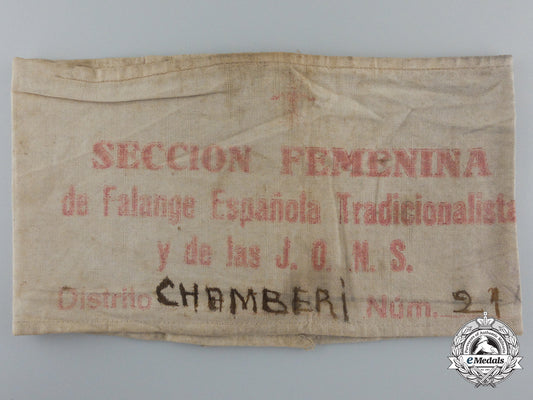 SECCION FEMENINA
de Falange Española Tradicionalista
y de las J. O. N. S.
Distrito CHAMBERÍ Núm. 21
eMedals